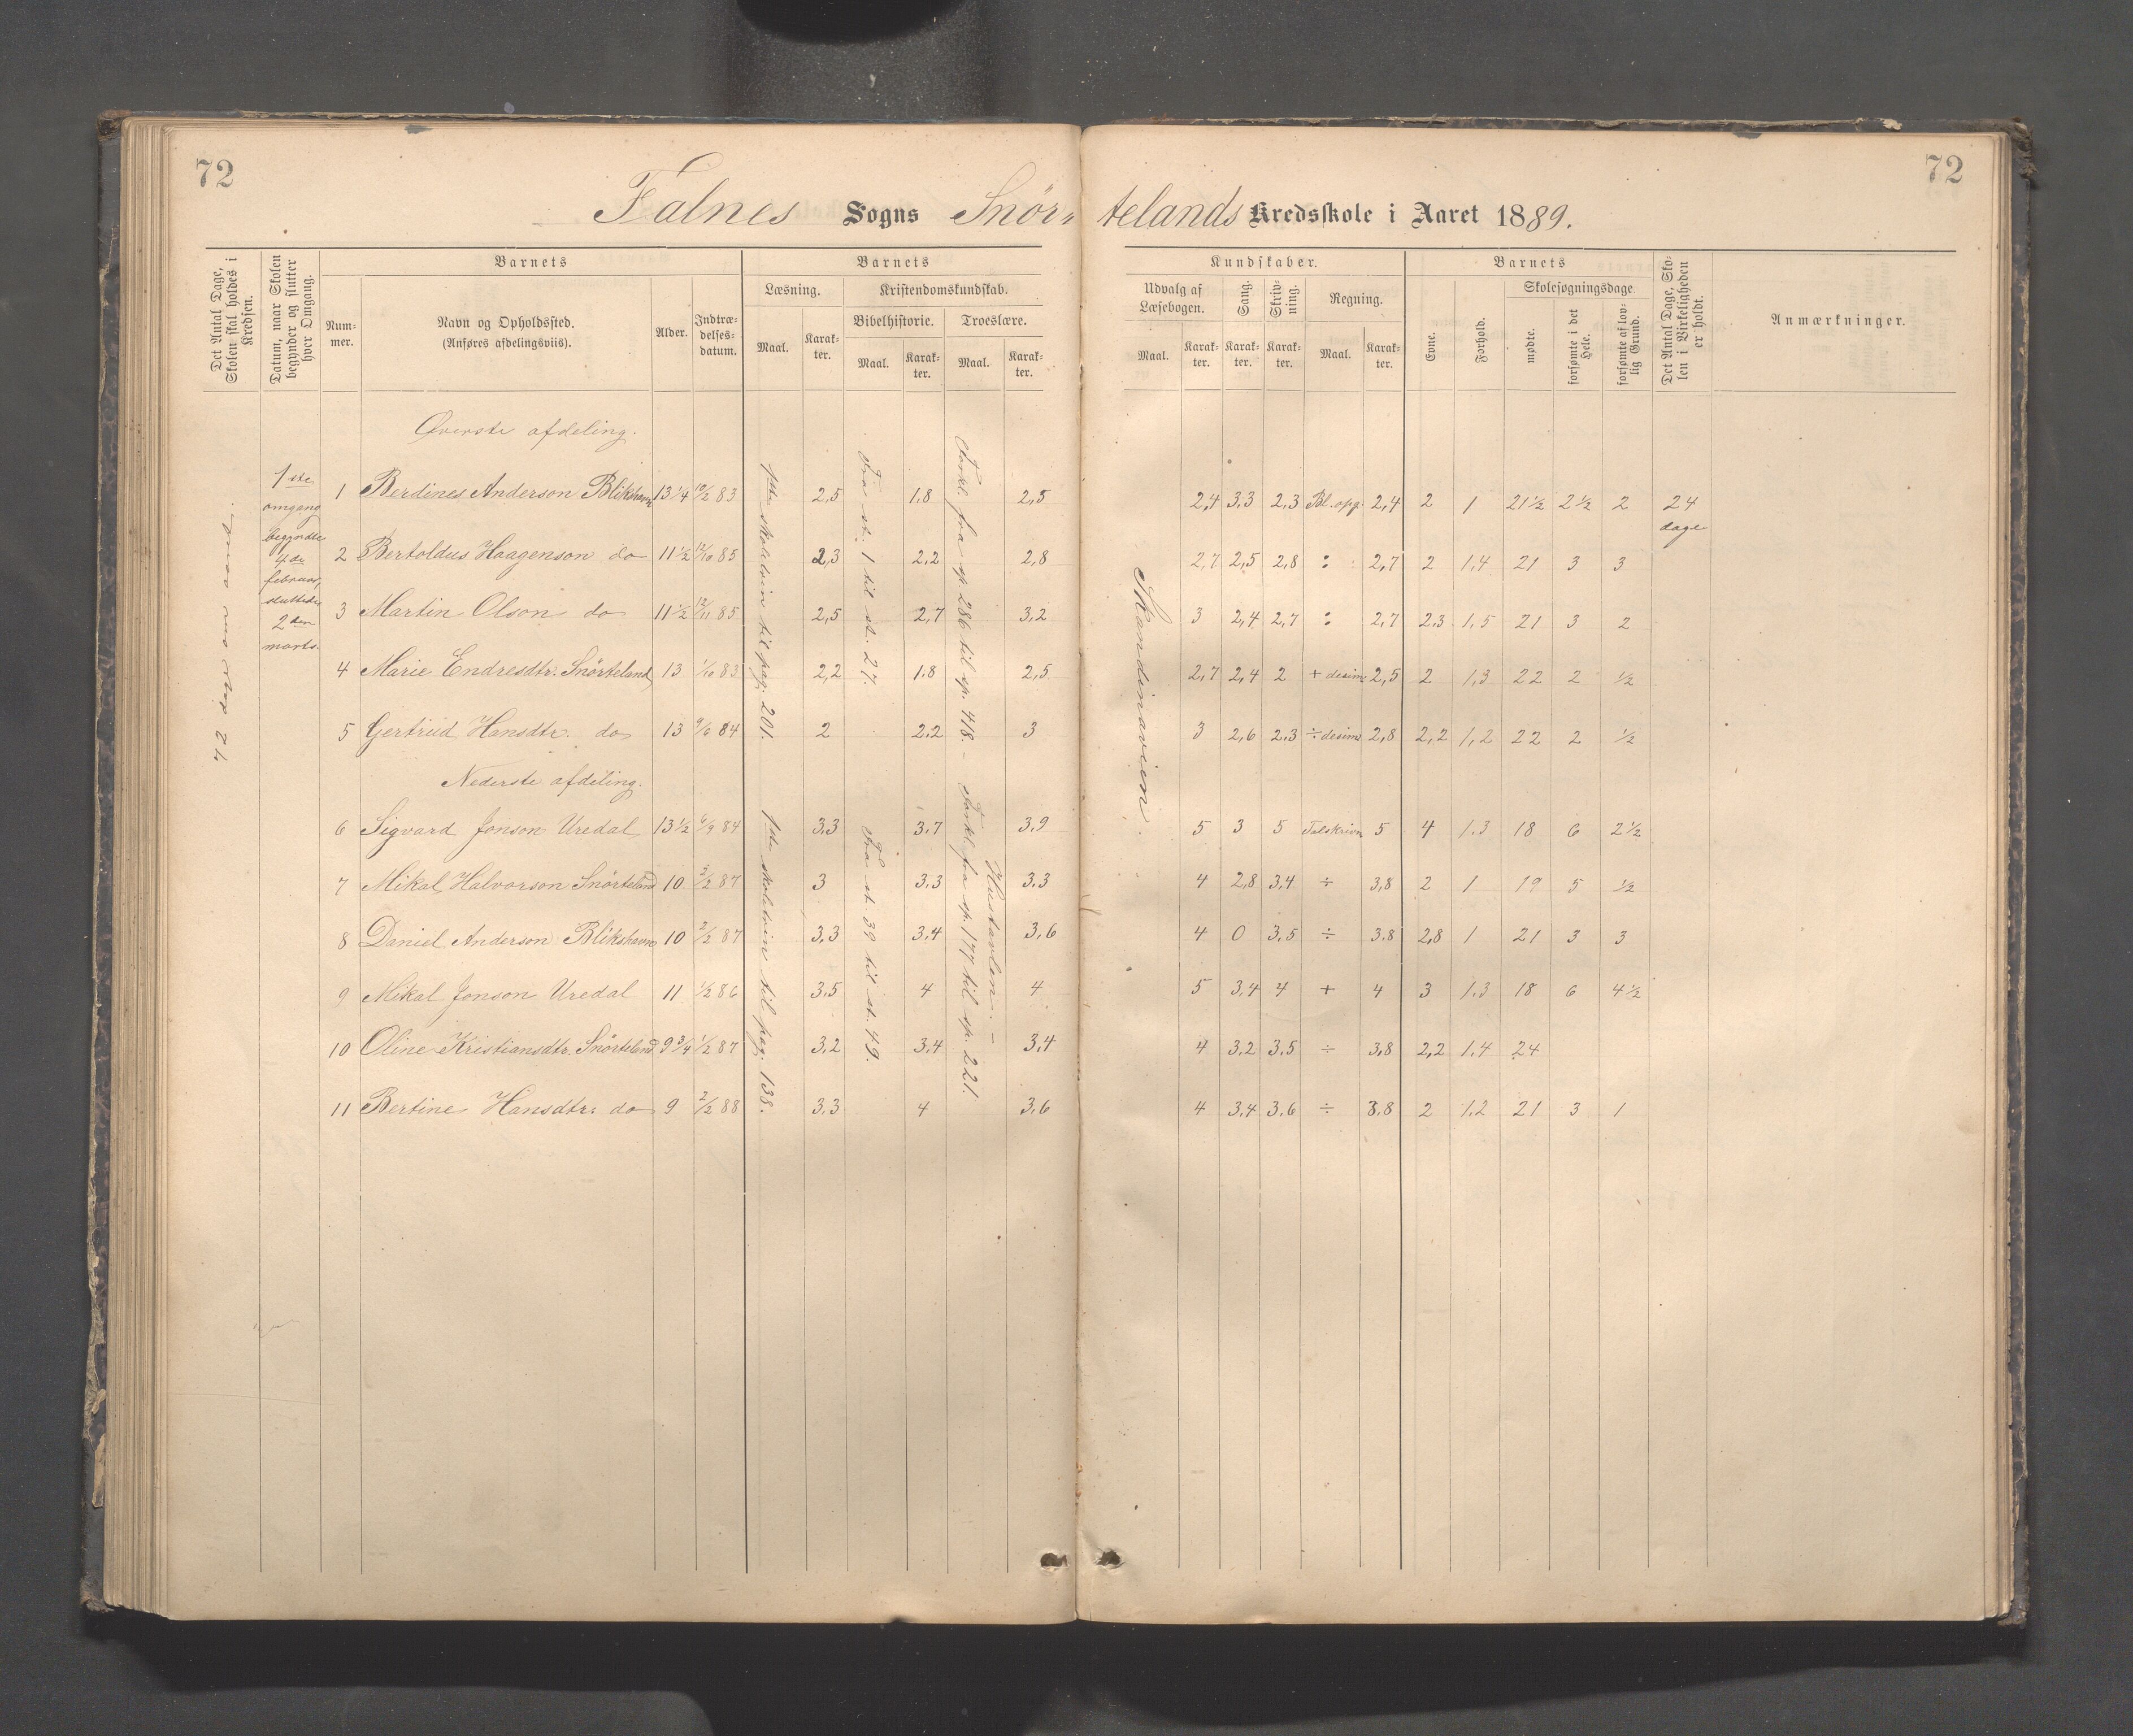 72
72
Falnes Sogns Snör- telands Kredsskole i Aaret 1889.
Det Antal Dage, Skolen skal holdes i Kredsen.
Datum, naar Skolen begynder og slutter hver Omgang.
Barnets
Num- mer.
Navn og Opholdssted. (Anføres afdelingsviis).
Alder.
Indtræ- delses- datum.
Barnets
Læsning.
Maal.
Karak- ter.
Kristendomskundskab.
Bibelhistorie.
Maal.
Karak- ter.
Troeslære.
Maal.
Karak- ter.
Kundskaber.
Udvalg af Læsebogen.
Maal.
Karak- ter.
Sang.
Karak- ter.
Skriv- ning.
Karak- ter.
Regning.
Maal.
Karak- ter.
Barnets
Evne.
Forhold.
Skolesøgningsdage.
mødte.
forsømte i det Hele.
forsømte af lov- lig Grund.
Det Antal Dage, Sko- len i Virkeligheden er holdt.
Anmærkninger.
72 dage om aaret.
1ste
omgang
begyndte
4de
februar,
sluttede
2den
marts.
Øverste afdeling.
1 Berdines Anderson Blikshavn 13 1/4 10/2 83 2,5 1.8 2,5 2,4 3.3 2.3 Bl. opg. 2,4 2 1 21 1/2 2 1/2 2 24 dage
2 Bertoldus Haagenson do 11 1/2 12/10 85 2,3 2.2 2,8 2,7 2,5 2,8 : 2,7 2 1,4 21 3 3
3 Martin Olson do 11 1/2 12/11 85 2,5 2,7 3,2 3 2,4 2,7 : 2,7 2.3 1,5 21 3 2
4 Marie Endresdtr. Snörteland 13 1/10 83 2,2 1.8 2,5 2,7 2,4 2 + desim. 2,5 2 1,3 22 2 1/2
5 Gertrud Hansdtr. do 13 9/6 84 2 2,2 3 3 2,6 2.3 ÷ desim. 2,8 2,2 1,2 22 2 1/2
Nederste afdeling.
6 Sigvard Jonson Uredal 13 1/2 6/9 84 3.3 3.7 3.9 5 3 5 Talskriv. 5 4 1.3 18 6 2 1/2
7 Mikal Halvorson Snörteland 10 2/2 87 3 3.3 3.3 4 2,8 3,4 ÷ 3,8 2 1 19 5 1/2
8 Daniel Anderson Blikshavn 10 2/2 87 3.3 3,4 3,6 4 0 3,5 ÷ 3.8 2,8 1 21 3 3
9 Mikal Jonson Uredal 11 1/2 86 3.5 4 4 5 3,4 4 + 4 3 1.3 18 6 4 1/2
10 Oline Kristiansdtr. Snörteland 9 3/4 1/2 87 3.2 3.4 3,4 4 3,2 3,5 ÷ 3,8 2,2 1,4 24
11 Bertine Hansdtr. do 9 2/2 88 3.3 4 3,6 4 3,4 3,6 ÷ 3.8 2 1.2 21 3 1
til pag. 201.
Fra st. 1 til st. 27.
Forkl. fra sp. 286 til sp. 418.
Skandinavien.
til pag. 138.
Fra st. 39 til st. 49.
Forkl. fra sp. 177 til sp. 221.
Hustavlen.